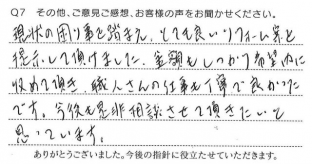 Q7 その他、ご意見ご感想、お客様の声をお聞かせください。
現状の困り事を踏まえ、とても良いリフォーム案を
提示して頂けました。金額もしっかり希望内に
収めて頂き、職人さんの仕事も丁寧で良かった
です。今後も是非相談させて頂きたいと
思っています。
ありがとうございました。今後の指針に役立たせていただきます。